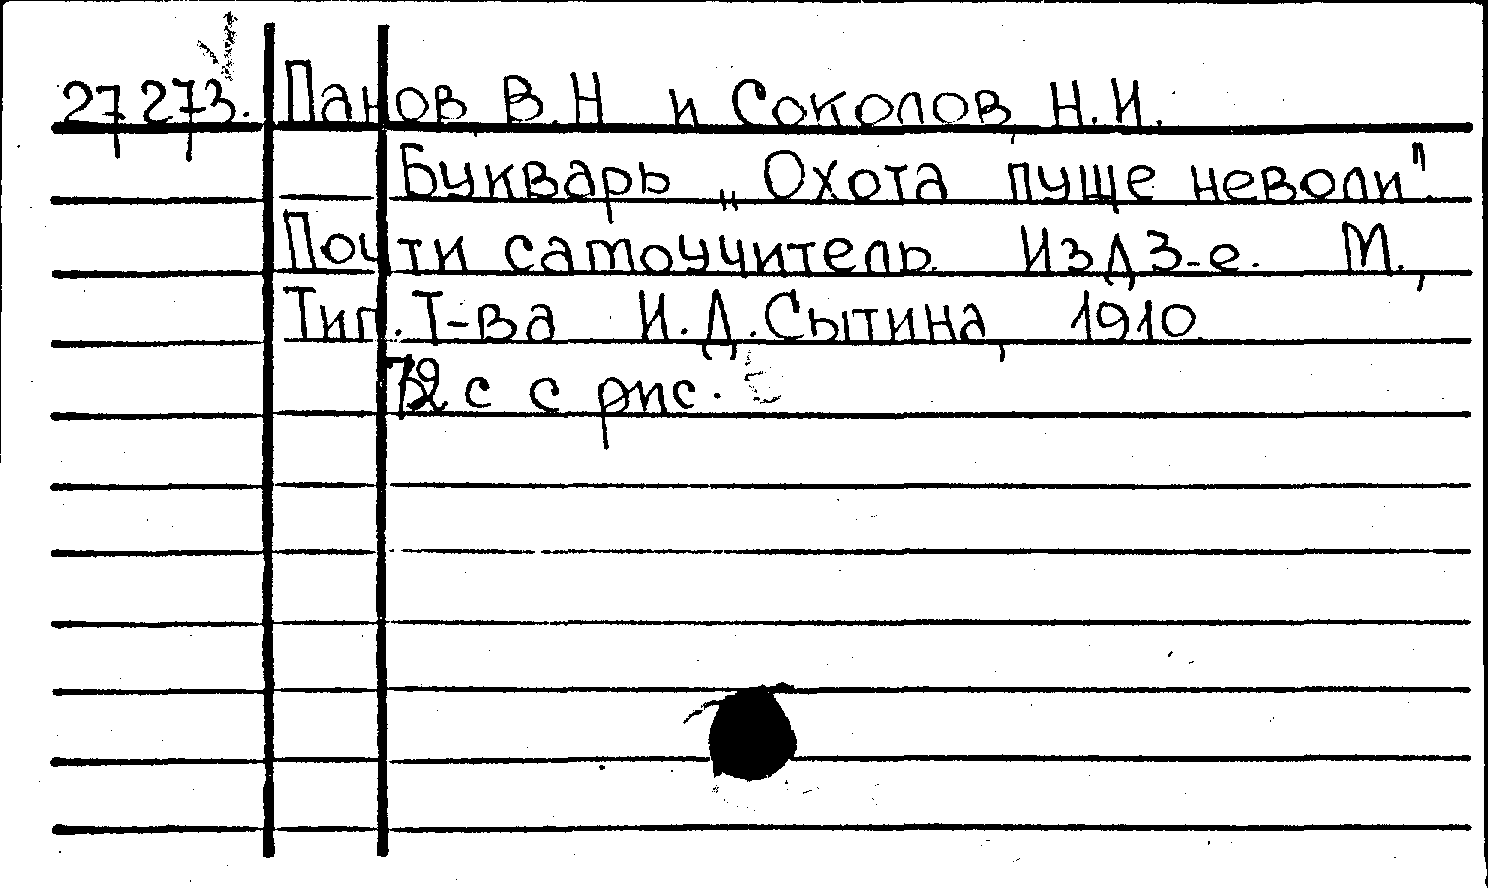 27273. Панов В.Н и Соколов, Н.И.
Букварь „Охота пуще неволи".
Почти самоучитель. Изд 3-е. М.,
Тип. Т-ва И.Д.Сытина, 1910.
72 с с рис.